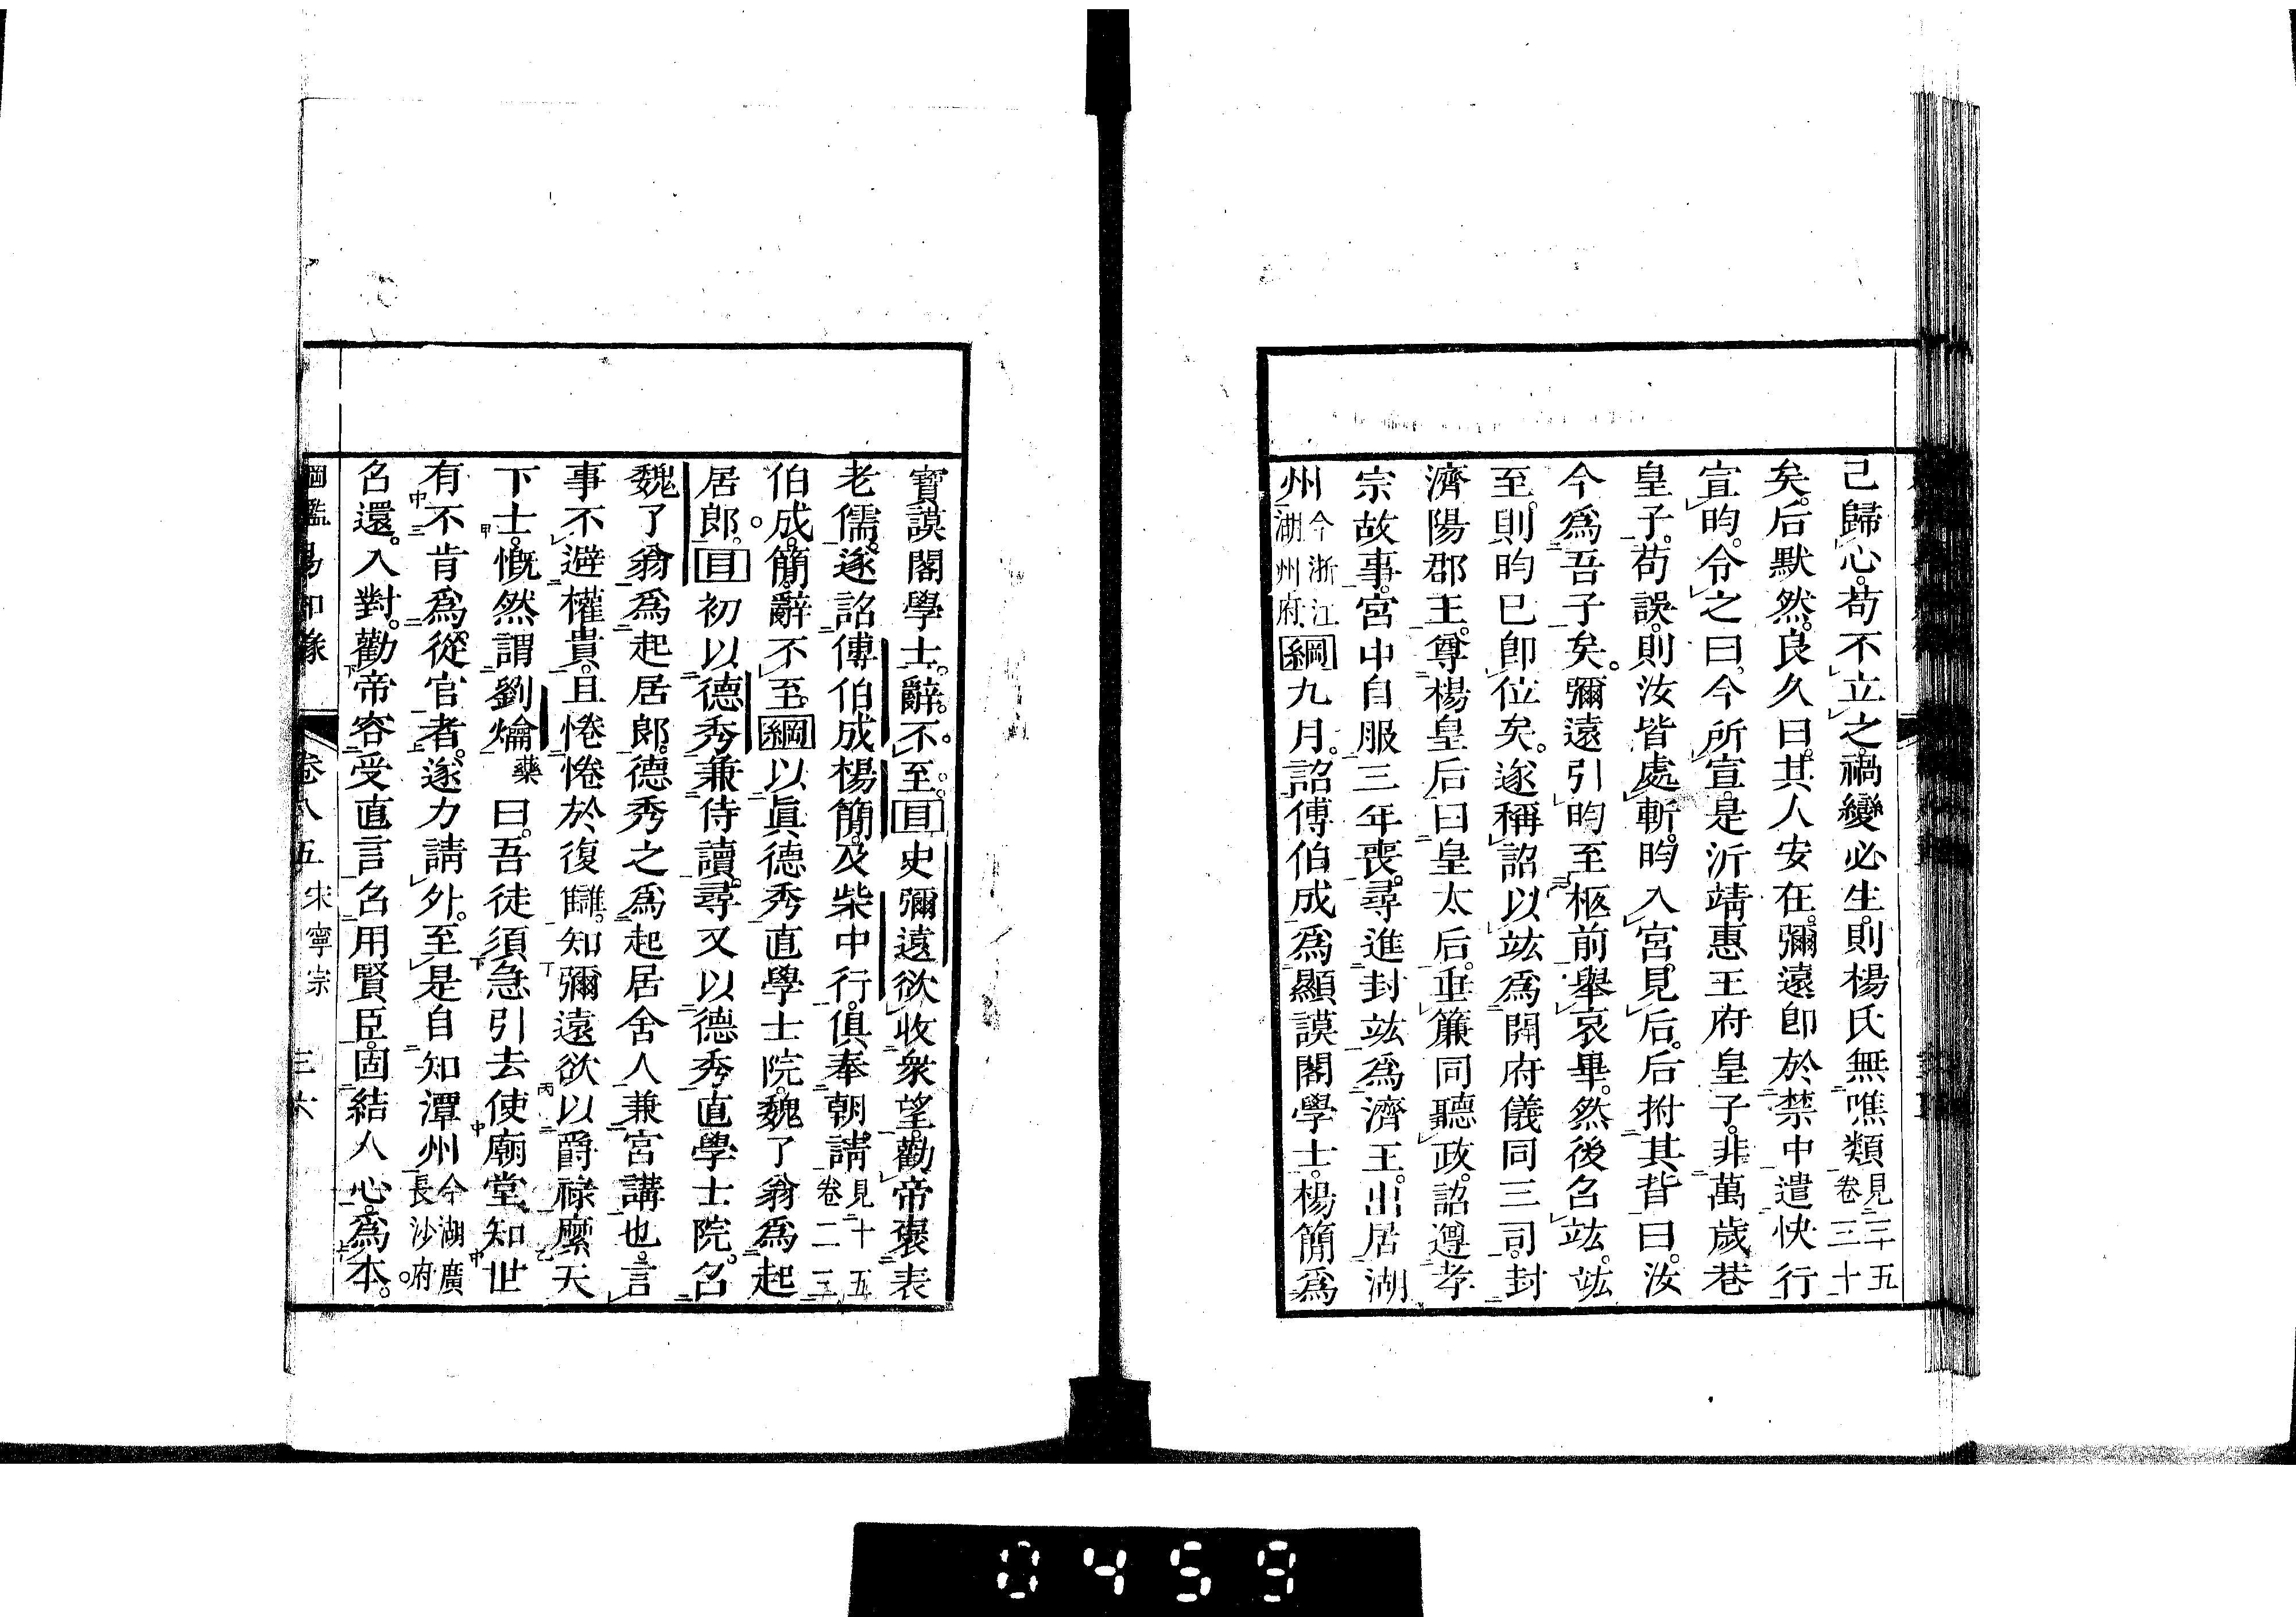 己歸心。苟不立之。禍變必生。則楊氏無噍類見三十五卷三十
矣。后默然。良久曰。其人安在。彌遠卽於禁中遣快行
宣昀。令之曰。今所宣。是沂靖惠王府皇子。非萬歲巷
皇子。苟誤。則汝皆處斬。昀入宮。見后。后拊其背曰。汝
今爲吾子矣。彌遠引昀至柩前。舉哀畢。然後召竑。竑
至。則昀已卽位矣。遂稱詔以竑爲開府儀同三司。封
濟陽郡王。尊楊皇后曰皇太后。垂簾同聽政。詔遵孝
宗故事。宮中自服三年喪。尋進封竑爲濟王。出居湖
州今浙江湖州府。綱九月。詔傅伯成爲顯謨閣學士。楊簡爲
寶謨閣學士。辭。不至。目史彌遠欲收衆望。勸帝褒表
老儒。遂詔傅伯成楊簡。及柴中行。俱奉朝請。見十五卷二三
伯成。簡。辭不至。綱以眞德秀直學士院。魏了翁爲起
居郎。目初以德秀兼侍讀。尋又以德秀直學士院。召
魏了翁爲起居郎。德秀之爲起居舍人兼宮講也。言
事不避權貴。且惓惓於復讎。知彌遠欲以爵祿縻天
下士。慨然謂劉爚藥曰。吾徒須急引去。使廟堂知世
有不肯爲從官者。遂力請外。至是自知潭州今湖廣長沙府。
召還。入對。勸帝容受直言。召用賢臣。固結人心。爲本。
綱鑑易知錄 卷八五 宋寧宗 三六
0459